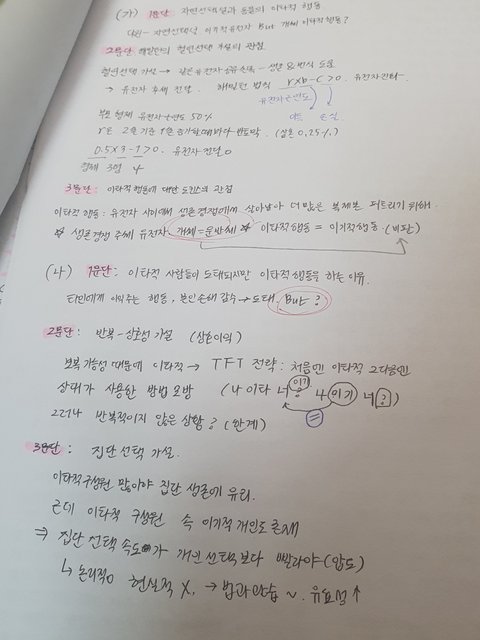 (가) 1문단 자연선택설과 동물의 이타적 행동
다윈 - 자연선택설 이기적유전자 But 개체 이타적행동?
2문단: 해밀턴의 혈연선택 가설의 관점
혈연선택 가설 → 같은유전자공유 손족 - 생존 & 번식 도움
→ 유전자 후세 전달. 해밀턴 법칙 r×b-c>0. 유전자 전달.
유전자근연도 이득 손실
부모 형제 유전자근연도 50%
r은 2촌 기준 1촌 증가할때마다 반토막. (삼촌 0.25%)
0.5×3-1>0. 유전자 전달 O
형제 3명 나
3문단: 이타적행동에 대한 도킨스의 관점
이타적 행동: 유전자 사이에서 생존경쟁에서 살아남아 더 많은 복제본 퍼트리기 위해.
☆ 생존경쟁 주체 유전자. 개체=운반체 ☆ 이타적행동 = 이기적행동. (비판)
(나) 1문단: 이타적 사람들이 도태되지만 이타적 행동을 하는 이유.
타인에게 이익주는 행동, 본인손해 감수 → 도태. But ?
2문단: 반복-상호성 가설 (상호이익)
보복 가능성 때문에 이타적 → TFT 전략: 처음엔 이타적 그다음엔
상대가 사용한 방법 모방 (나 이타 너 ? 이기 나 이기 너 ?)
=
그러나 반복적이지 않은 상황? (한계)
3문단: 집단 선택 가설.
이타적구성원 많아야 집단 생존에 유리.
근데 이타적 구성원 속 이기적 개인도 존재
⇒ 집단 선택 속도가 개인 선택보다 빨라야 (압도)
↳ 논리적O 현실적 X, → 법과 관습 ~. 유효성↑